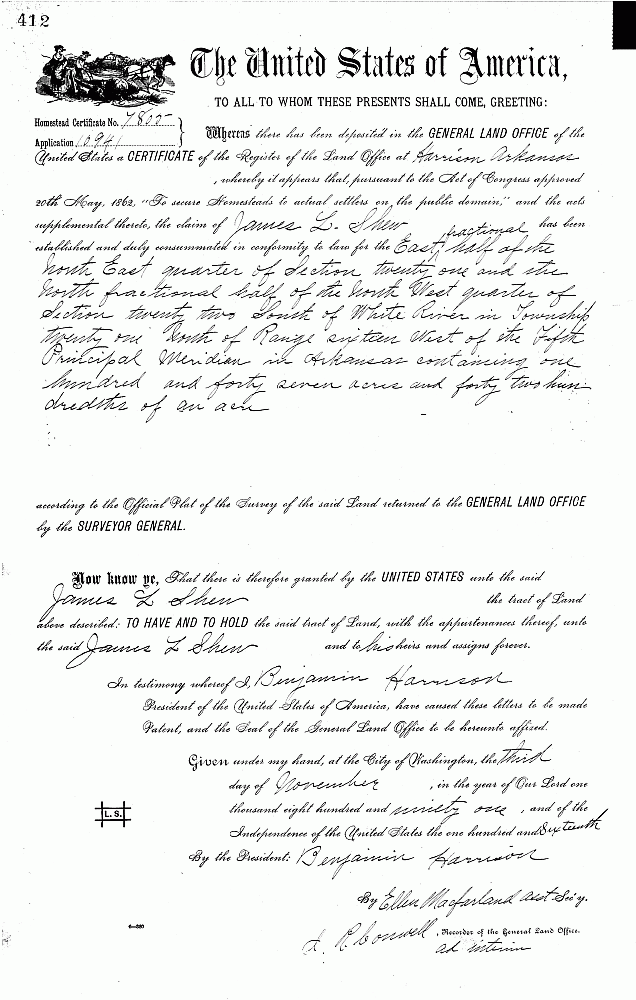 412
The United States of America,
TO ALL TO WHOM THESE PRESENTS SHALL COME, GREETING:
Homestead Certificate No. 7805
Application 10941
Whereas there has been deposited in the GENERAL LAND OFFICE of the
United States a CERTIFICATE of the Register of the Land Office at Harrison Arkansas
, whereby it appears that, pursuant to the Act of Congress approved
20th May, 1862, "To secure Homesteads to actual settlers on the public domain," and the acts
supplemental thereto, the claim of James L. Shew has been
established and duly consummated in conformity to law for the East fractional half of the
North East quarter of Section twenty one and the
North fractional half of the North West quarter of
Section twenty two South of White River in Township
twenty one North of Range sixteen West of the Fifth
Principal Meridian in Arkansas containing one
hundred and forty seven acres and forty two hun
dredths of an acre
according to the Official Plat of the Survey of the said Land returned to the GENERAL LAND OFFICE
by the SURVEYOR GENERAL.
Now know ye, That there is therefore granted by the UNITED STATES unto the said
James L Shew the tract of Land
above described: TO HAVE AND TO HOLD the said tract of Land, with the appurtenances thereof, unto
the said James L Shew and to his heirs and assigns forever.
In testimony whereof I, Benjamin Harrison
President of the United States of America, have caused these letters to be made
Patent, and the Seal of the General Land Office to be hereunto affixed.
Given under my hand, at the City of Washington, the third
day of November , in the year of Our Lord one
thousand eight hundred and ninety one , and of the
Independence of the United States the one hundred and Sixteenth
L. S.
By the President: Benjamin Harrison
By Ellen Macfarland asst Sec'y.
I. R. Conwell , Recorder of the General Land Office.
ad interim